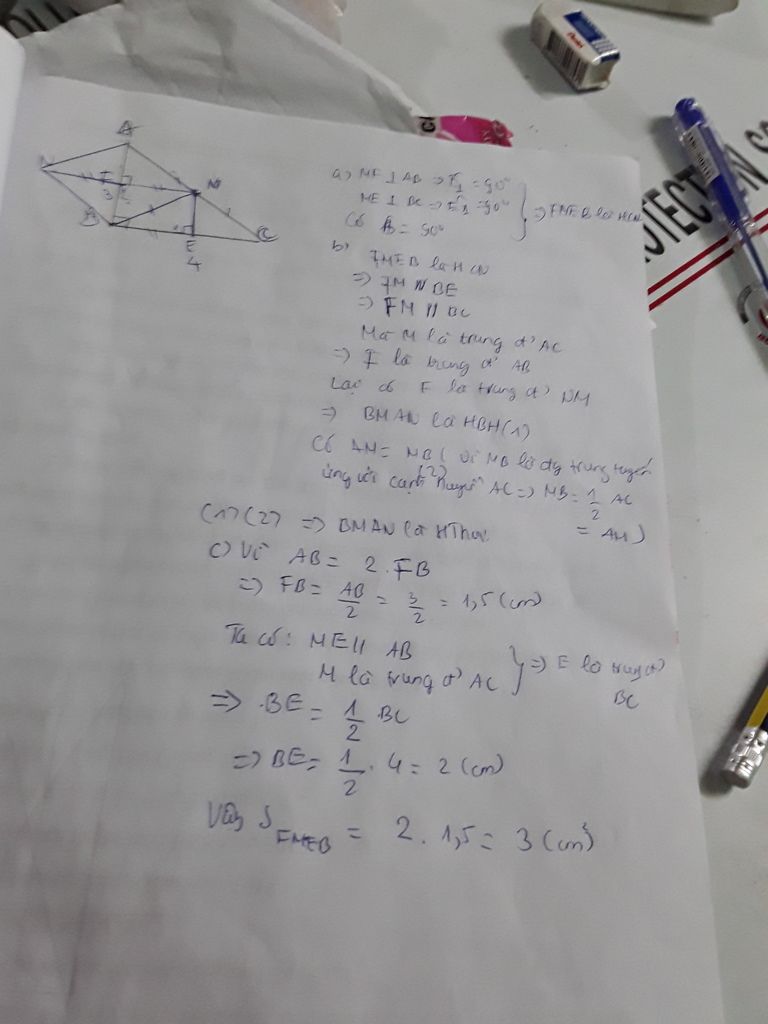 A
N
F
M
3
B
E
C
4
a) MF ⊥ AB ⇒ F̂₁ = 90°
ME ⊥ BC ⇒ Ê₁ = 90°
Có B̂ = 90°
⇒ FMEB là HCN
b)
FMEB là HCN
⇒ FM // BE
⇒ FM // BC
Mà M là trung đ' AC
⇒ F là trung đ' AB
Lại có F là trung đ' NM
⇒ BMAN là HBH (1)
Có AM = MB ( vì MB là đg trung tuyến
ứng với cạnh huyền AC ⇒ MB = 1/2 AC
(2)
= AM )
(1) (2) ⇒ BMAN là HThoi
c) Vì AB = 2. FB
⇒ FB = AB/2 = 3/2 = 1,5 (cm)
Ta có: ME // AB
M là trung đ' AC
⇒ E là trung đ'
BC
⇒ BE = 1/2 BC
⇒ BE = 1/2 . 4 = 2 (cm)
Vậy S FMEB = 2. 1,5 = 3 (cm²)
PROTECTION